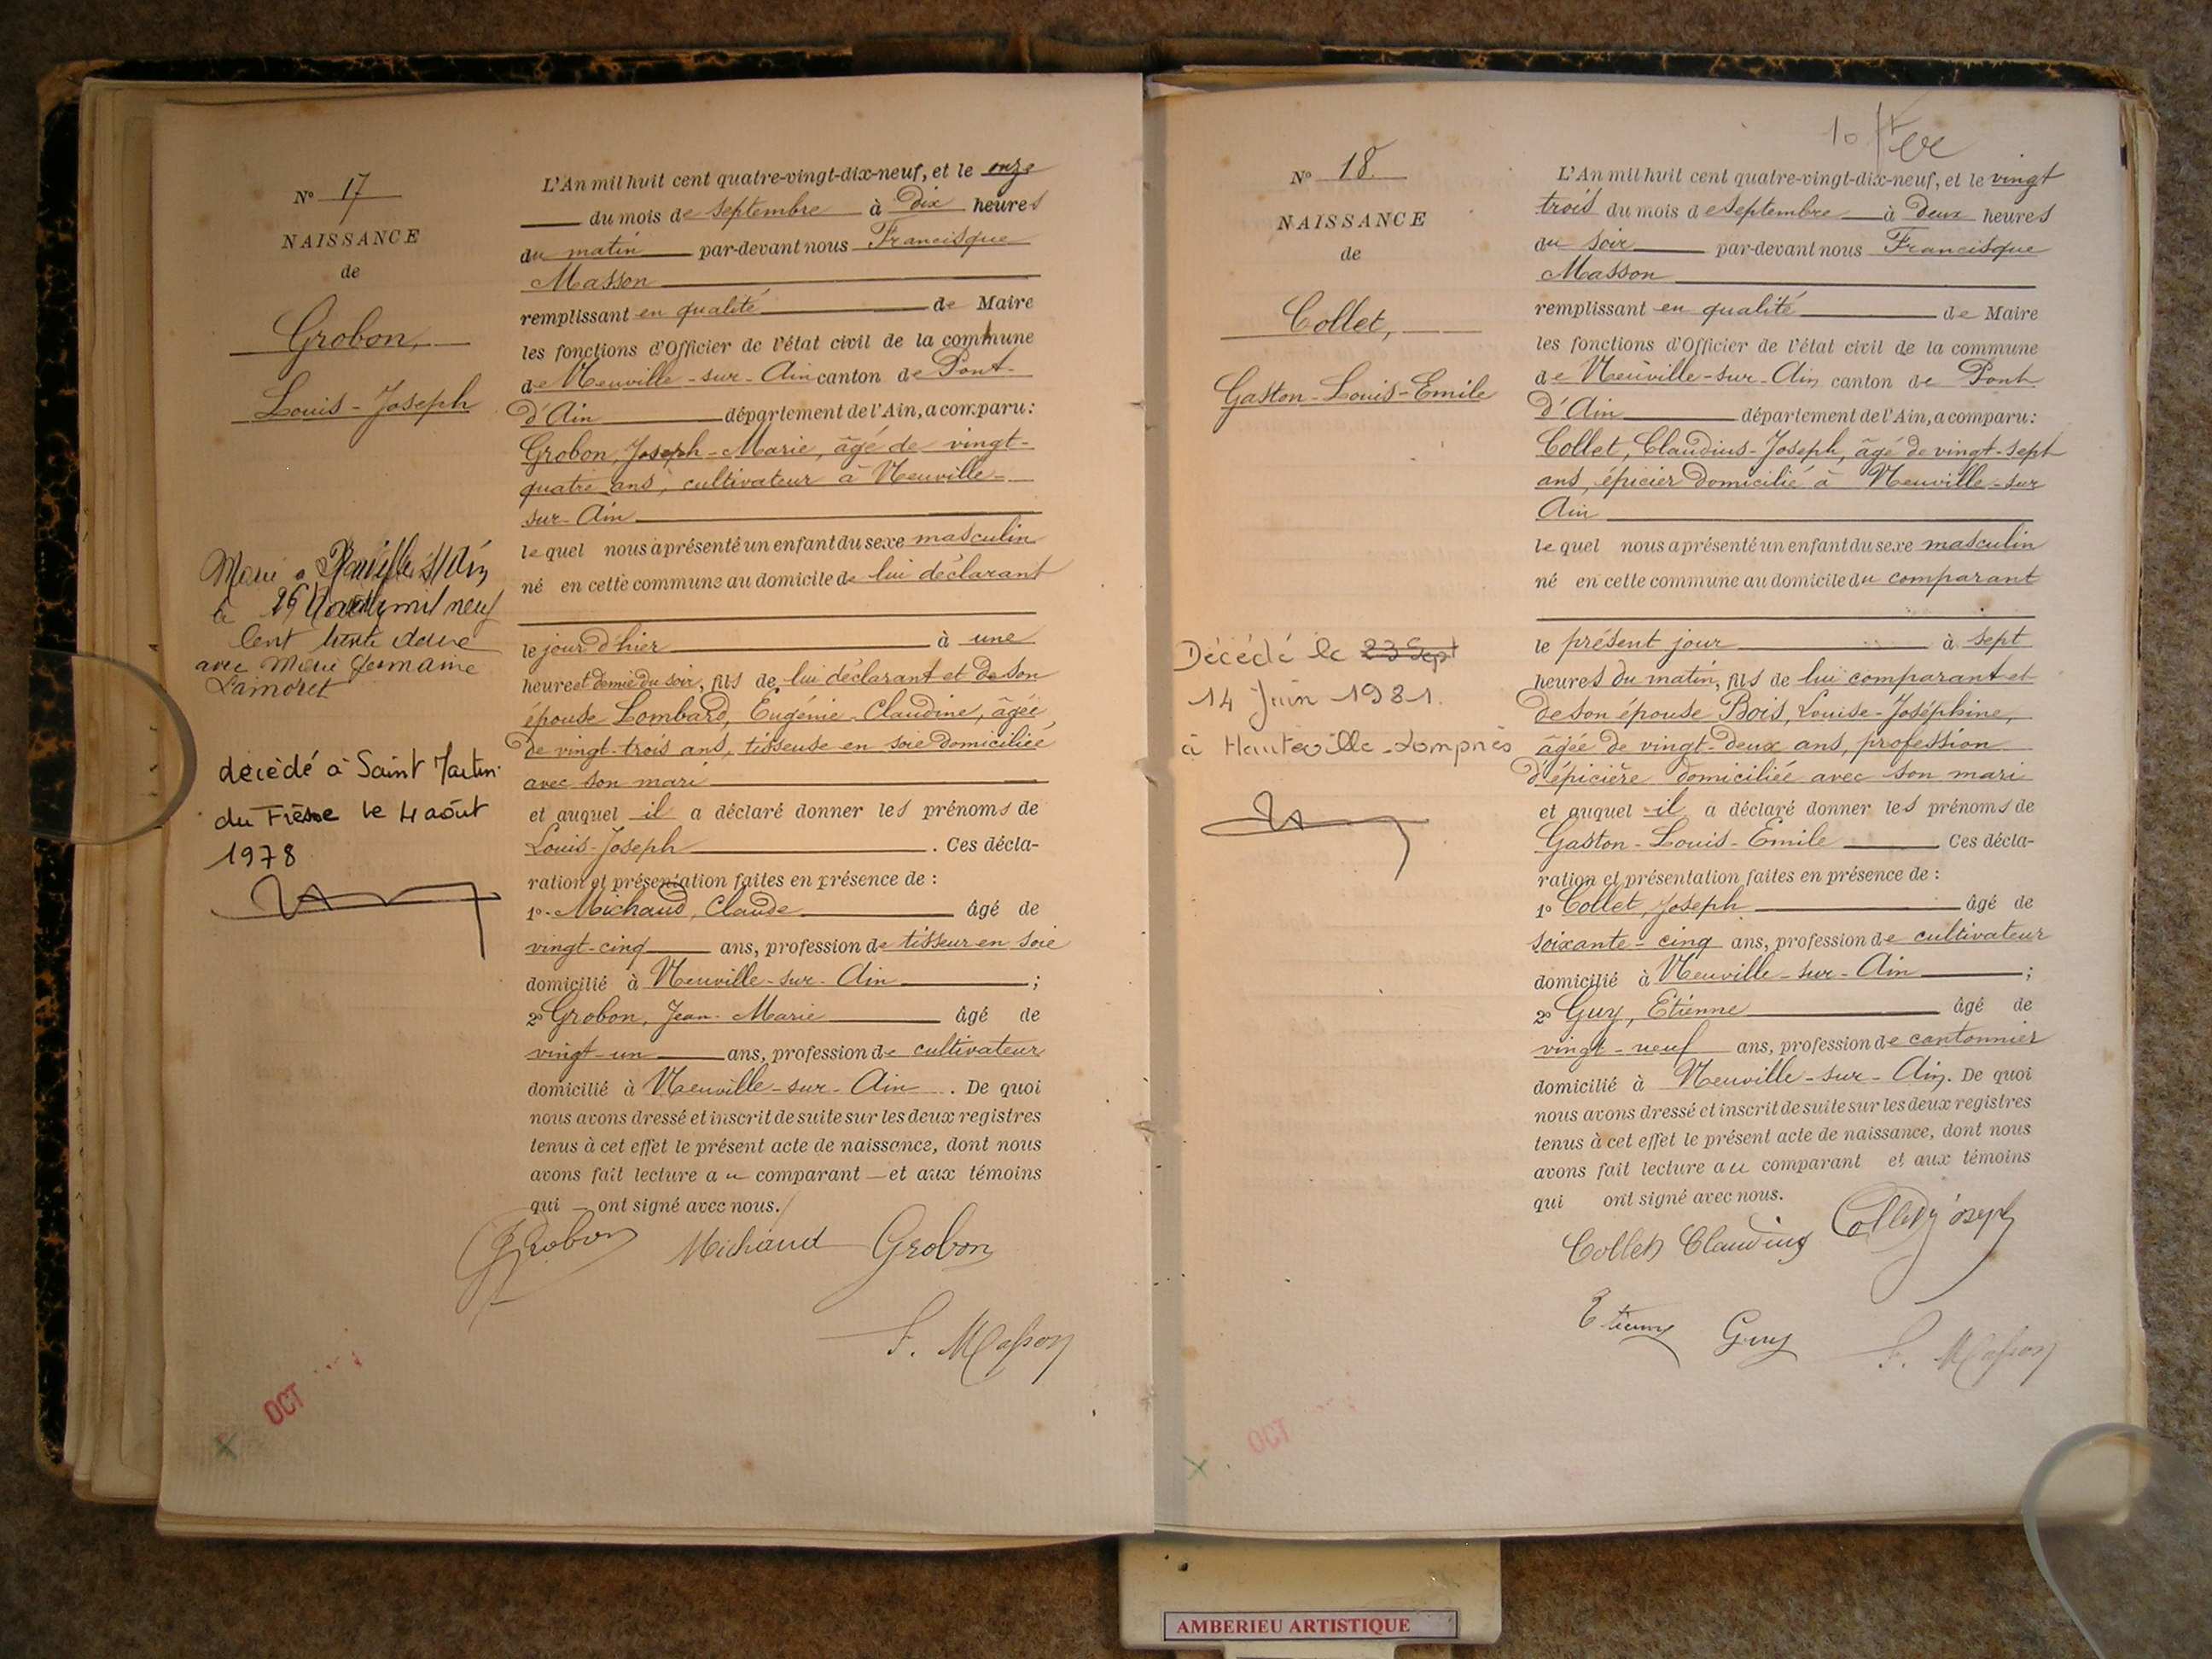 N° 17
NAISSANCE
de
Grobon,
Louis-Joseph
Marié à Neuville s/Ain
le 26 mil neuf
cent trente deux
avec Marie Germaine
Lamoret
décédé à Saint Martin
du Frêsne le 4 août
1978
L'An mil huit cent quatre-vingt-dix-neuf, et le onze
du mois de septembre à dix heures
du matin par-devant nous Francisque
Masson
remplissant en qualité de Maire
les fonctions d'Officier de l'état civil de la commune
de Neuville-sur-Ain canton de Pont-
d'Ain département de l'Ain, a comparu:
Grobon, Joseph-Marie, âgé de vingt-
quatre ans, cultivateur à Neuville-
sur-Ain
lequel nous a présenté un enfant du sexe masculin
né en cette commune au domicile de lui déclarant
le jour d'hier à une
heure et demie du soir, fils de lui déclarant et de son
épouse Lombard, Eugénie-Claudine, âgée
de vingt-trois ans, tisseuse en soie domiciliée
avec son mari
et auquel il a déclaré donner les prénoms de
Louis-Joseph. Ces décla-
ration et présentation faites en présence de :
1° Michaud, Claude âgé de
vingt-cinq ans, profession de tisseur en soie
domicilié à Neuville-sur-Ain ;
2° Grobon, Jean-Marie âgé de
vingt-un ans, profession de cultivateur
domicilié à Neuville-sur-Ain. De quoi
nous avons dressé et inscrit de suite sur les deux registres
tenus à cet effet le présent acte de naissance, dont nous
avons fait lecture au comparant et aux témoins
qui ont signé avec nous.
Grobon Michaud Grobon
F. Masson
OCT
N° 18
NAISSANCE
de
Collet,
Gaston-Louis-Emile
Décédé le 23 Sept
14 Juin 1981.
à Hauteville-Lompnès
10
L'An mil huit cent quatre-vingt-dix-neuf, et le vingt
trois du mois de septembre à deux heures
du soir par-devant nous Francisque
Masson
remplissant en qualité de Maire
les fonctions d'Officier de l'état civil de la commune
de Neuville-sur-Ain canton de Pont
d'Ain département de l'Ain, a comparu:
Collet, Claudius-Joseph, âgé de vingt-sept
ans, épicier domicilié à Neuville-sur
Ain
lequel nous a présenté un enfant du sexe masculin
né en cette commune au domicile du comparant
le présent jour à sept
heures du matin, fils de lui comparant et
de son épouse Bois, Louise-Joséphine,
âgée de vingt-deux ans, profession
d'épicière domiciliée avec son mari
et auquel il a déclaré donner les prénoms de
Gaston-Louis-Emile Ces décla-
ration et présentation faites en présence de :
1° Collet, Joseph âgé de
soixante-cinq ans, profession de cultivateur
domicilié à Neuville-sur-Ain ;
2° Guy, Etienne âgé de
vingt-neuf ans, profession de cantonnier
domicilié à Neuville-sur-Ain. De quoi
nous avons dressé et inscrit de suite sur les deux registres
tenus à cet effet le présent acte de naissance, dont nous
avons fait lecture au comparant et aux témoins
qui ont signé avec nous.
Collet Claudius Collet Joseph
Etienne Guy F. Masson
OCT
AMBERIEU ARTISTIQUE